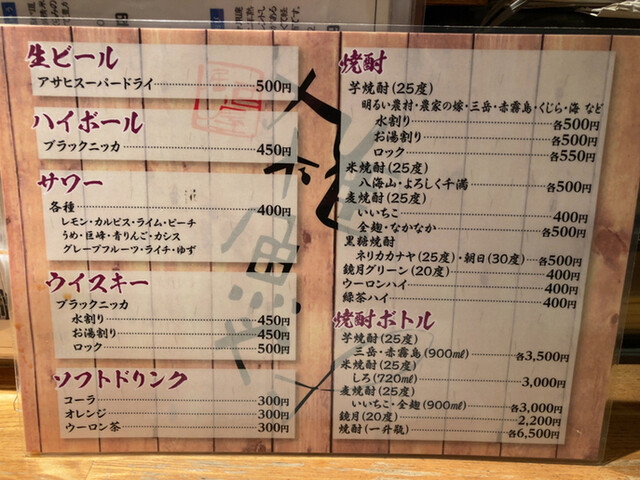 生ビール
アサヒスーパードライ 500円
ハイボール
ブラックニッカ 450円
サワー
各種 400円
レモン・カルピス・ライム・ピーチ
うめ・巨峰・青りんご・カシス
グレープフルーツ・ライチ・ゆず
ウイスキー
ブラックニッカ
水割り 450円
お湯割り 450円
ロック 500円
ソフトドリンク
コーラ 300円
オレンジ 300円
ウーロン茶 300円
焼酎
芋焼酎(25度)
明るい農村・農家の嫁・三岳・赤霧島・くじら・海 など
水割り 各500円
お湯割り 各500円
ロック 各550円
米焼酎(25度)
八海山・よろしく千萬 各500円
麦焼酎(25度)
いいちこ 400円
全麹・なかなか 各500円
黒糖焼酎
ネリカカナヤ(25度)・朝日(30度) 各500円
鏡月グリーン(20度) 400円
ウーロンハイ 400円
緑茶ハイ 400円
焼酎ボトル
芋焼酎(25度)
三岳・赤霧島(900㎖) 各3,500円
米焼酎(25度)
しろ(720㎖) 3,000円
麦焼酎(25度)
いいちこ・全麹(900㎖) 各3,000円
鏡月(20度) 2,200円
焼酎(一升瓶) 各6,500円